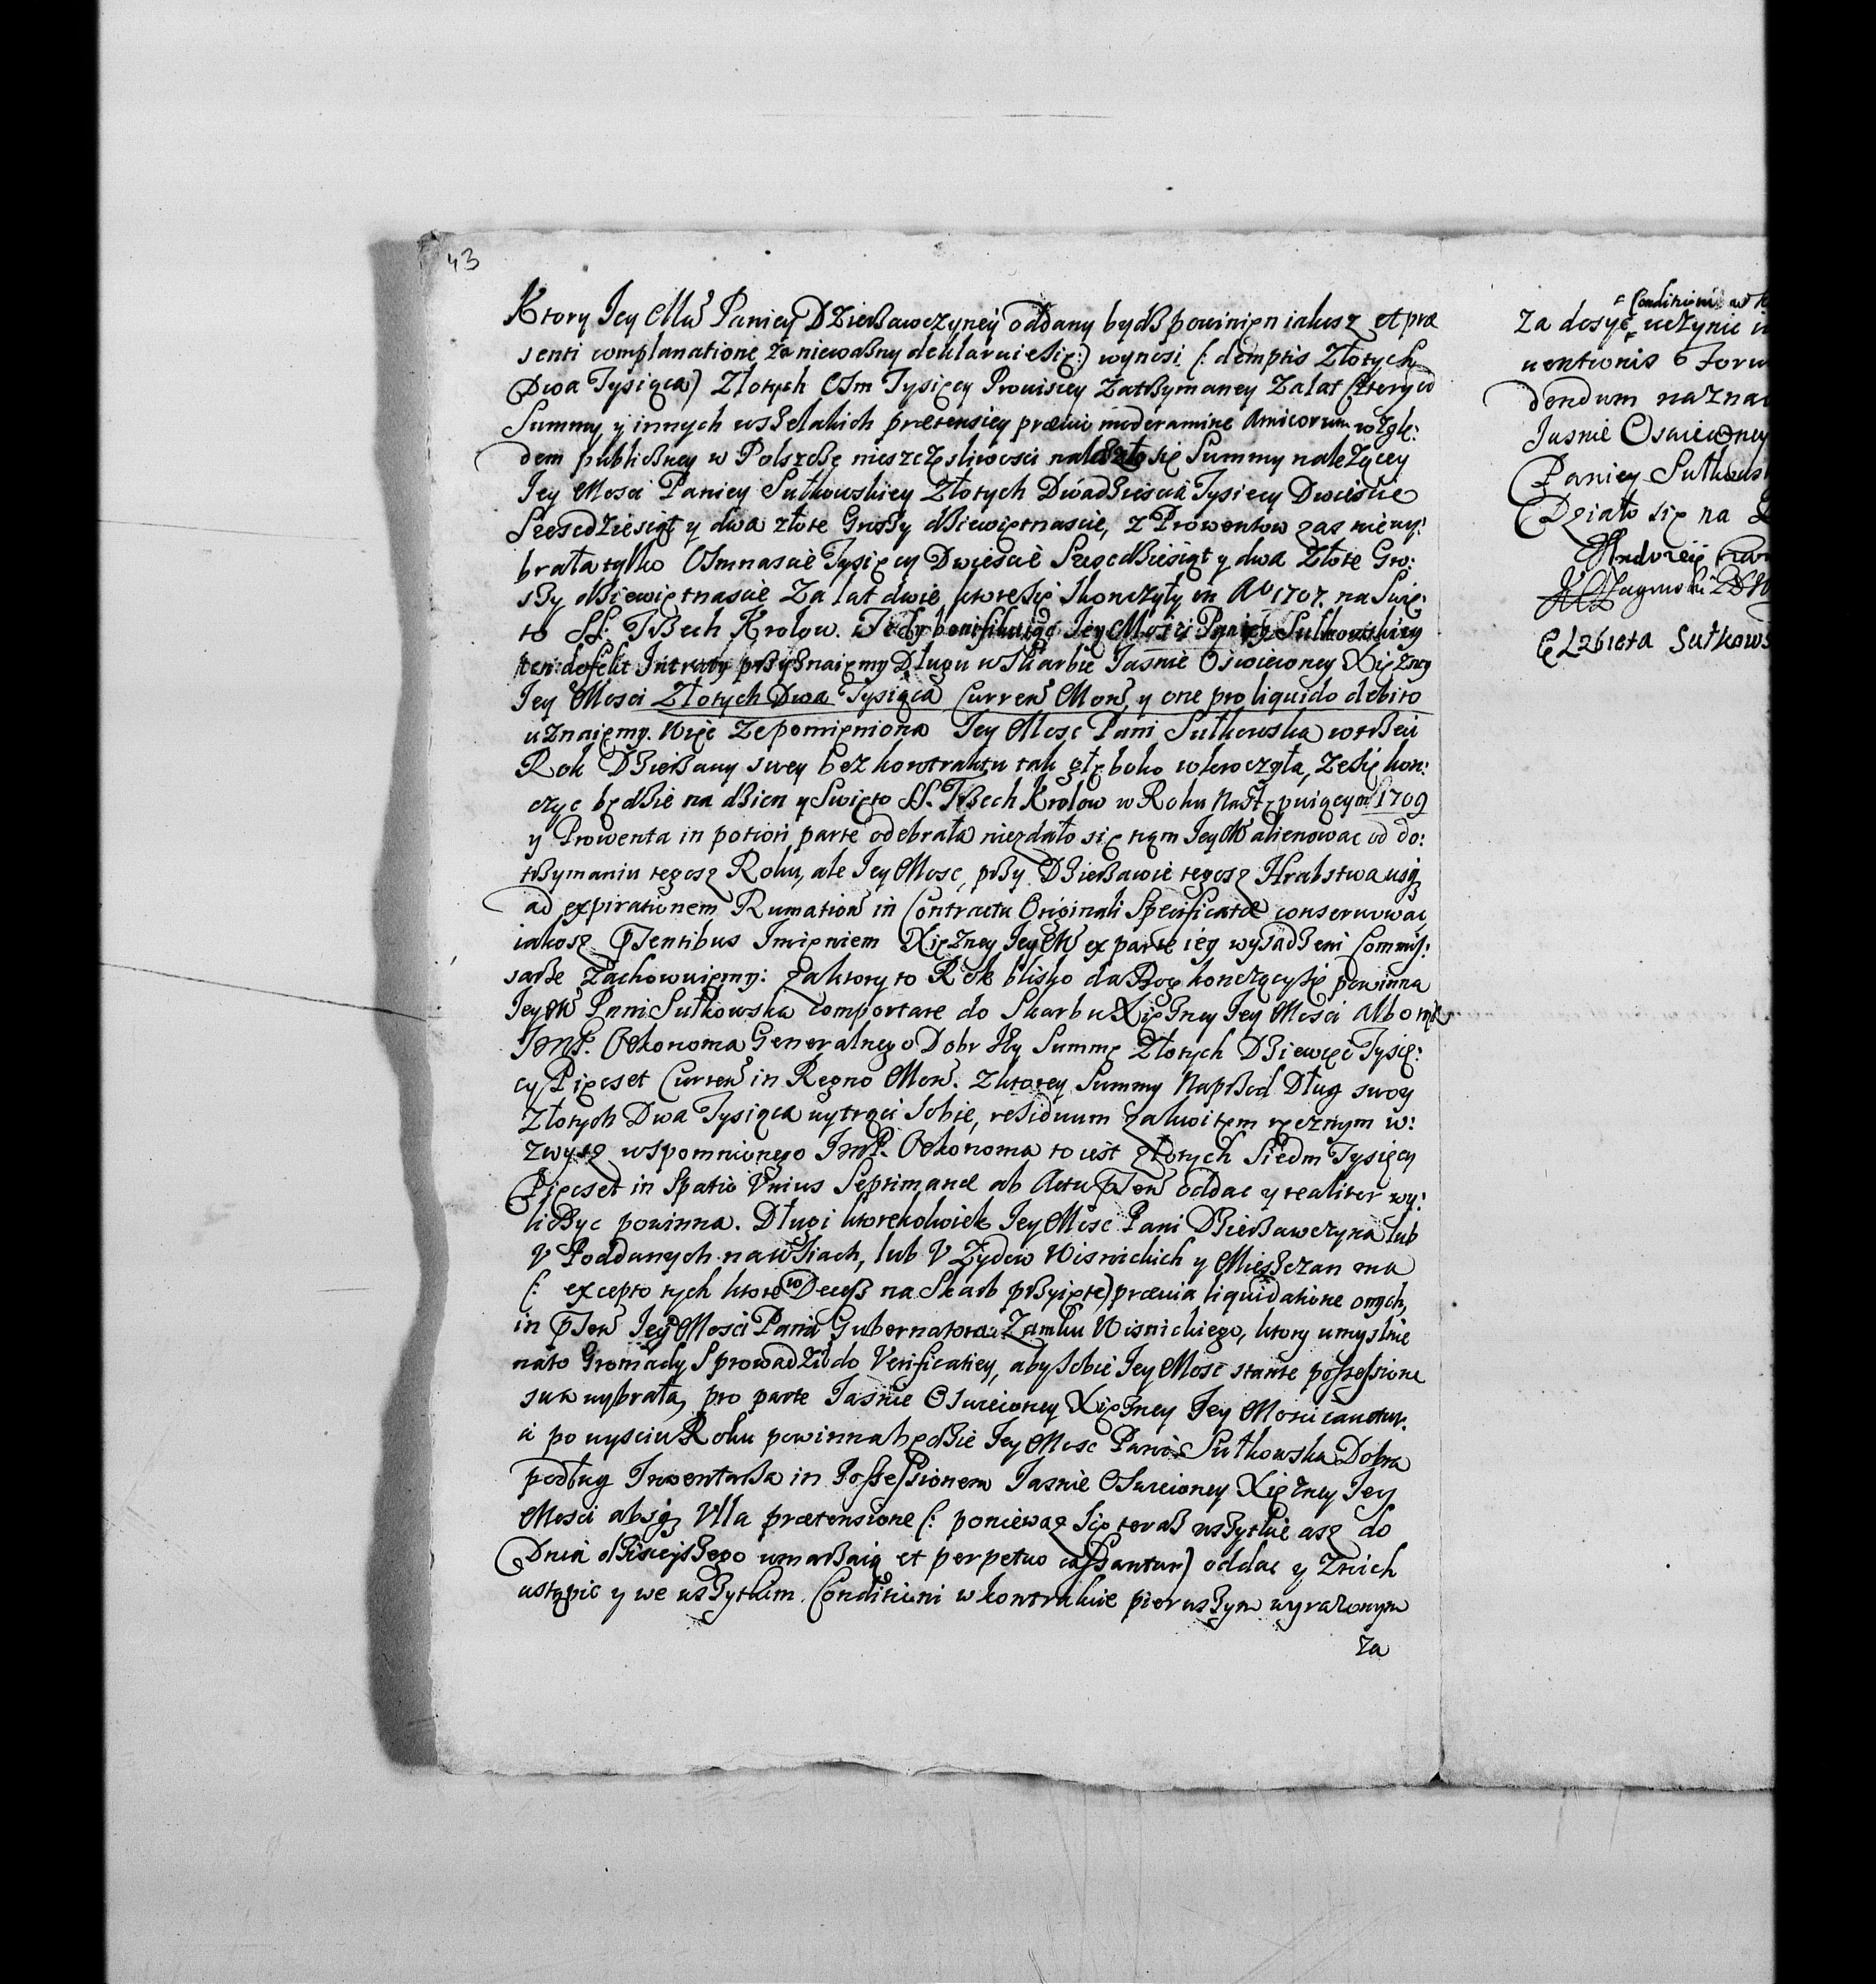 43
Ktory Jey Mći Paniey Dzierżawczyney oddany bydź powinien iakusz et præ
senti complanatione za nieważny deklaruie się:) wynosi (: demptis Złotych
Dwa Tysiąca) Złotych Osm Tysięcy Prowisiey zatrzymaney za lat cztery od
Summy y innych wszelakich prætensiey prævio moderamine Amicorum wzglę:
dem publiczney w Polszcze nieszczęsliwosci nalazło się Summy należącey
Jey Mosci Paniey Sułkowskiey Złotych Dwadziescia Tysięcy Dwiescie
Szescdziesiąt y dwa złote Groszy dziewiętnascie, z Prowentow zas niewy:
brała tylko Osmnascie Tysięcy Dwiescie Szescdziesiąt y dwa Złote Gro:
szy dziewiętnascie Za lat dwie ktore się skonczyły in Ao 1707. na Swię:
to SS: Trzech Krolow. Tedy bonifikuiąc Jey Mosci Paniey Sułkowskiey
ten defekt Intraty przyznaiemy Długu w Skarbie Jasnie Oswieconey Xiężney
Jey Mosci Złotych Dwa Tysiąca Curren Mon, y one pro liquido debito
uznaiemy. Więc ze pomieniona Jey Mosc Pani Sułkowska w trzeci
Rok Dzierżawy swey bez kontraktu tak głęboko wkroczyła, ze się kon:
czyc będzie na dzien y Swięto SS. Trzech Krolow w Roku Następuiącym 1709
y Prowenta in potiori parte odebrała niezdało się nam Jey Mć alienowac od do:
trzymania tegosz Roku, ale Jey Mosc, przy Dzierżawie tegosz Hrabstwa usq
ad expirationem Rumation in Contractu Originali Specificatæ conserwowac
iakosz Psentibus Imieniem Xiężney Jey Mć ex parte iey wysadzeni Commis:
sarze zachowuiemy: za ktory to Rok blisko da Bog konczący się powinna
Jey Mć Pani Sułkowska comportare do Skarbu Xiężney Jey Mosci albo
JmP. Oekonoma Generalnego Dobr Jey Summę Złotych Dziewięć Tysię:
cy Pięcset Curren in Regno Mon. z ktorey Summy Naprzod Dług swoy
Złotych Dwa Tysiąca wytrąci sobie, residuum za kwitem ręcznym w:
zwysz wspomnionego JmP. Oekonoma to iest złotych Siedm Tysięcy
Pięcset in Spatio Unius Septimanæ ab Actu Psen oddac y realiter wy:
liczyc powinna. Długi ktorekolwiek Jey Mosc Pani Dzierżawczyna lub
V Poddanych na wsiach, lub V Zydow Wisnickich y Mieszczan ma
(: excepto tych ktore Decess na Skarb przyięte) prævia liquidatione onych,
in Psen Jey Mosci Pana Gubernatora Zamku Wisnickiego, ktory umyslnie
na to Gromady sprowadzi do Verificatiey, aby sobie Jey Mosc stante possessione
sua wybrała, pro parte Jasnie Oswieconey Xiężney Jey Mosci cavetur.
a po wysciu Roku powinna będzie Jey Mosc Pani Sułkowska Dobra
podług Inwentarza in Possessionem Jasnie Oswieconey Xiężney Jey
Mosci absq Vlla prætensione (: poniewasz się teraz wszytkie asz do
Dnia dzisieyszego umarzaią et perpetuo cassantur) oddac y z nich
ustąpic y we wszytkim Conditioni w kontrakcie pierwszym wyrazonym
za
Conditioni w
Za dosyc uczynic
uentionis Foru
dendum na zna
Jasnie Oswieconey
Paniey Sułkows
Działo się na
Andrzey
Elzbieta Sułkows